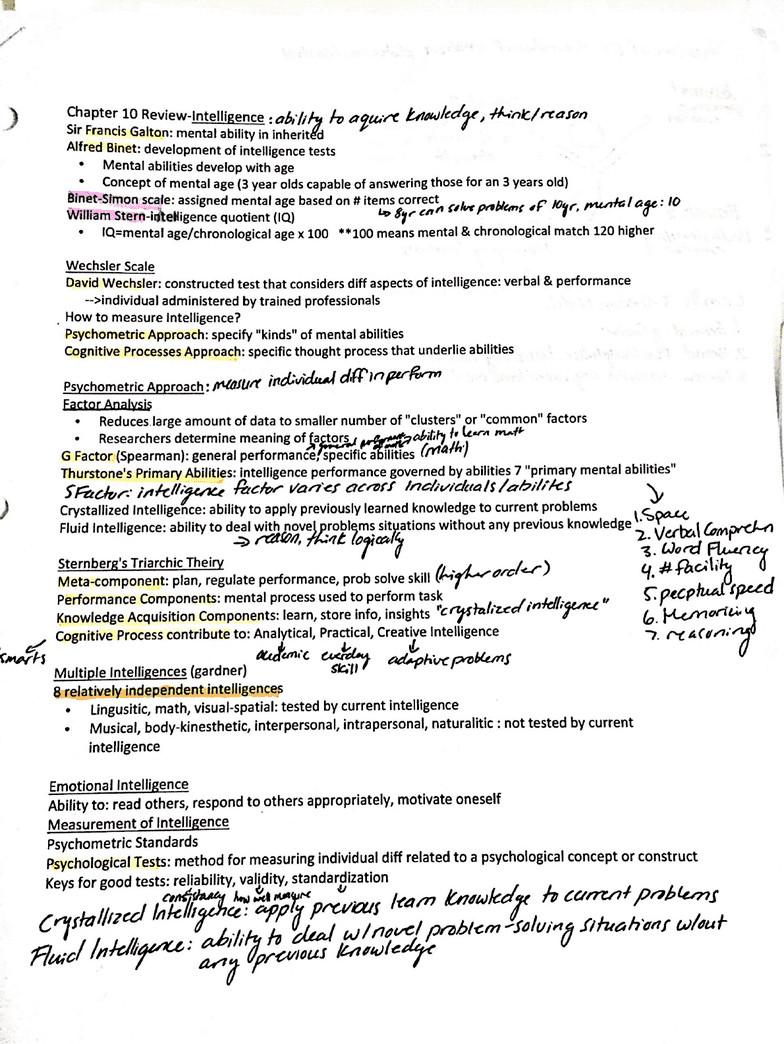 Chapter 10 Review-Intelligence : ability to aquire knowledge, think/reason
Sir Francis Galton: mental ability in inherited
Alfred Binet: development of intelligence tests
• Mental abilities develop with age
• Concept of mental age (3 year olds capable of answering those for an 3 years old)
Binet-Simon scale: assigned mental age based on # items correct
↳ 8yr can solve problems of 10yr, mental age: 10
William Stern-intelligence quotient (IQ)
• IQ=mental age/chronological age x 100 **100 means mental & chronological match 120 higher
Wechsler Scale
David Wechsler: constructed test that considers diff aspects of intelligence: verbal & performance
-->individual administered by trained professionals
How to measure Intelligence?
Psychometric Approach: specify "kinds" of mental abilities
Cognitive Processes Approach: specific thought process that underlie abilities
Psychometric Approach: measure individual diff in perform
Factor Analysis
• Reduces large amount of data to smaller number of "clusters" or "common" factors
• Researchers determine meaning of factors
ability to learn math
G Factor (Spearman): general performance/specific abilities (math)
Thurstone's Primary Abilities: intelligence performance governed by abilities 7 "primary mental abilities"
SFactor: intelligence factor varies across Individuals/abilites
Crystallized Intelligence: ability to apply previously learned knowledge to current problems
Fluid Intelligence: ability to deal with novel problems situations without any previous knowledge
→ reason, think logically
1. Space
2. Verbal Comprehn
3. Word Fluency
4. # facility
5. pecptual speed
6. Memorizing
7. reasoning
Sternberg's Triarchic Theiry
Meta-component: plan, regulate performance, prob solve skill (higher order)
Performance Components: mental process used to perform task
Knowledge Acquisition Components: learn, store info, insights "crystalized intelligence"
Cognitive Process contribute to: Analytical, Practical, Creative Intelligence
smarts
academic everyday skill adaptive problems
Multiple Intelligences (gardner)
8 relatively independent intelligences
• Lingusitic, math, visual-spatial: tested by current intelligence
• Musical, body-kinesthetic, interpersonal, intrapersonal, naturalitic : not tested by current
intelligence
Emotional Intelligence
Ability to: read others, respond to others appropriately, motivate oneself
Measurement of Intelligence
Psychometric Standards
Psychological Tests: method for measuring individual diff related to a psychological concept or construct
Keys for good tests: reliability, validity, standardization
consistancy how well measure
Crystallized Intelligence: apply previous learn knowledge to current problems
Fluid Intelligence: ability to deal w/novel problem-solving situations w/out
any previous knowledge